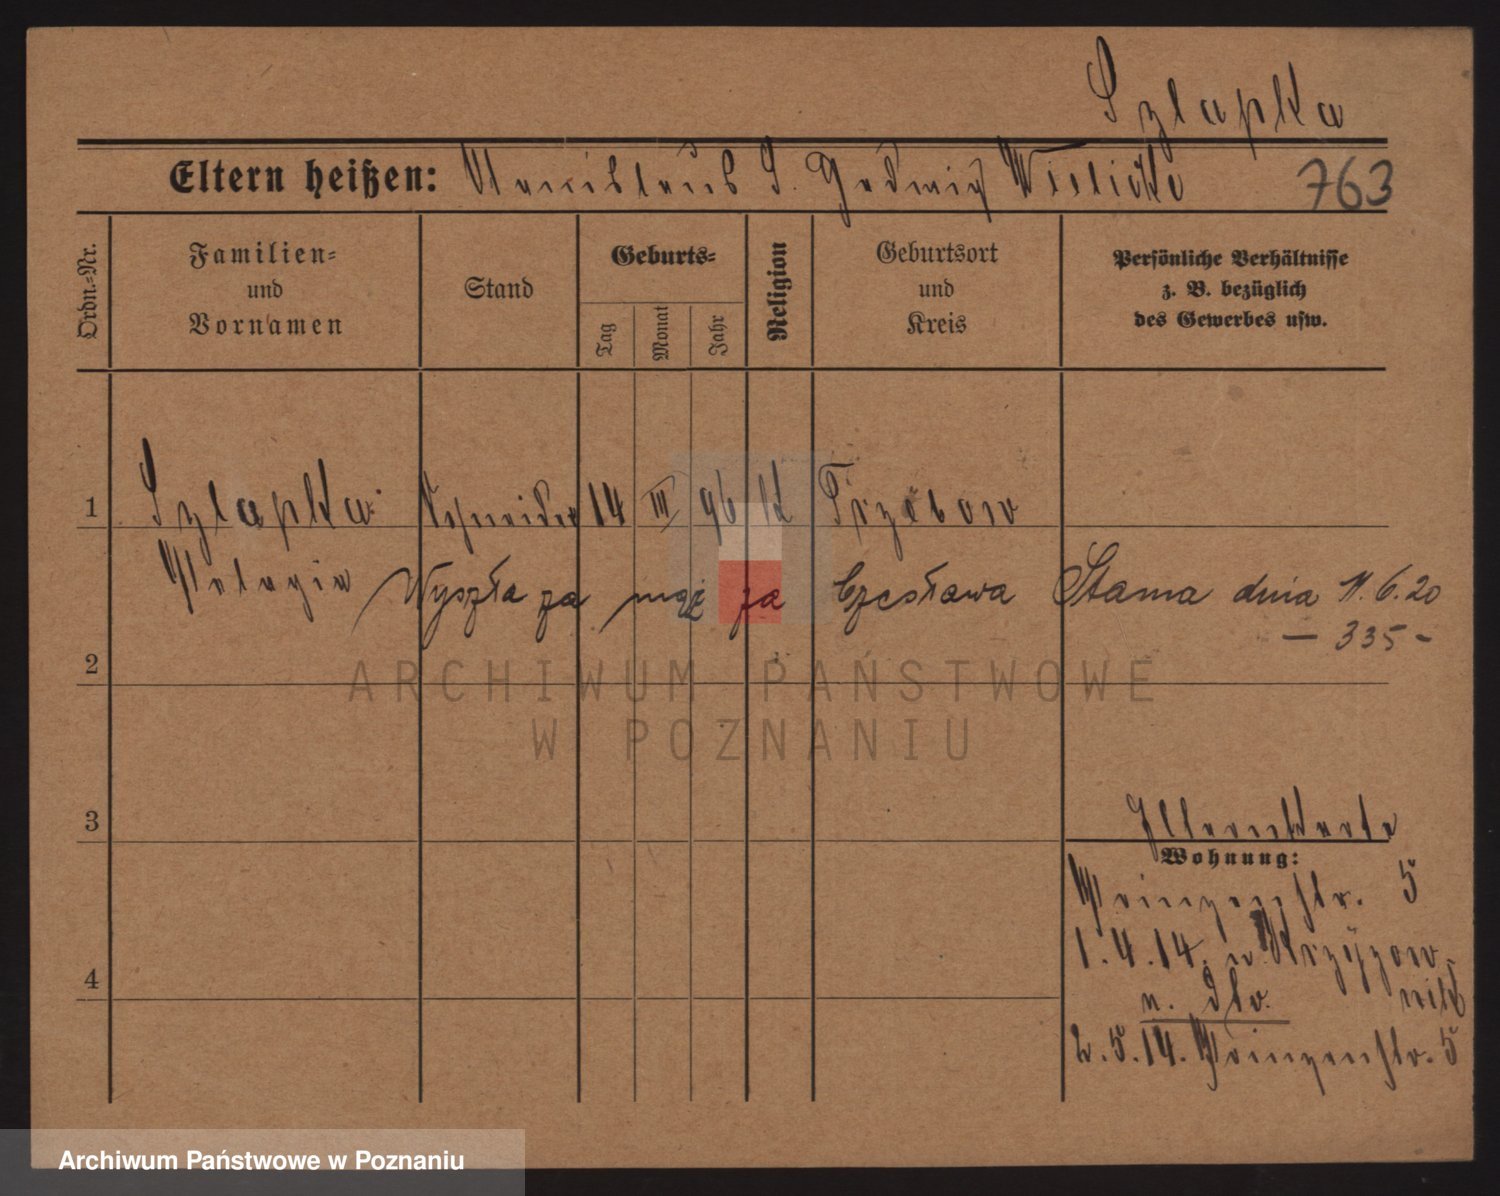 Szlapka
Eltern heißen: Stanislaus S. Hedwig Wielicka
763
Ordn.-Nr.
Familien- und Vornamen
Stand
Geburts-
Tag
Monat
Jahr
Religion
Geburtsort und Kreis
Persönliche Verhältnisse z. B. bezüglich des Gewerbes usw.
1
Szlapka 14 III 96 K
Pelagia Wyszła za mąż za Czesława Stama dnia 11.6.20
— 335 -
2
3
Elternkarte
Wohnung:
Prinzenstr. 5
1.4.14. n. Krzyżow-
nik
4
2.5.14. Prinzenstr. 5
ARCHIWUM PAŃSTWOWE
W POZNANIU
Archiwum Państwowe w Poznaniu